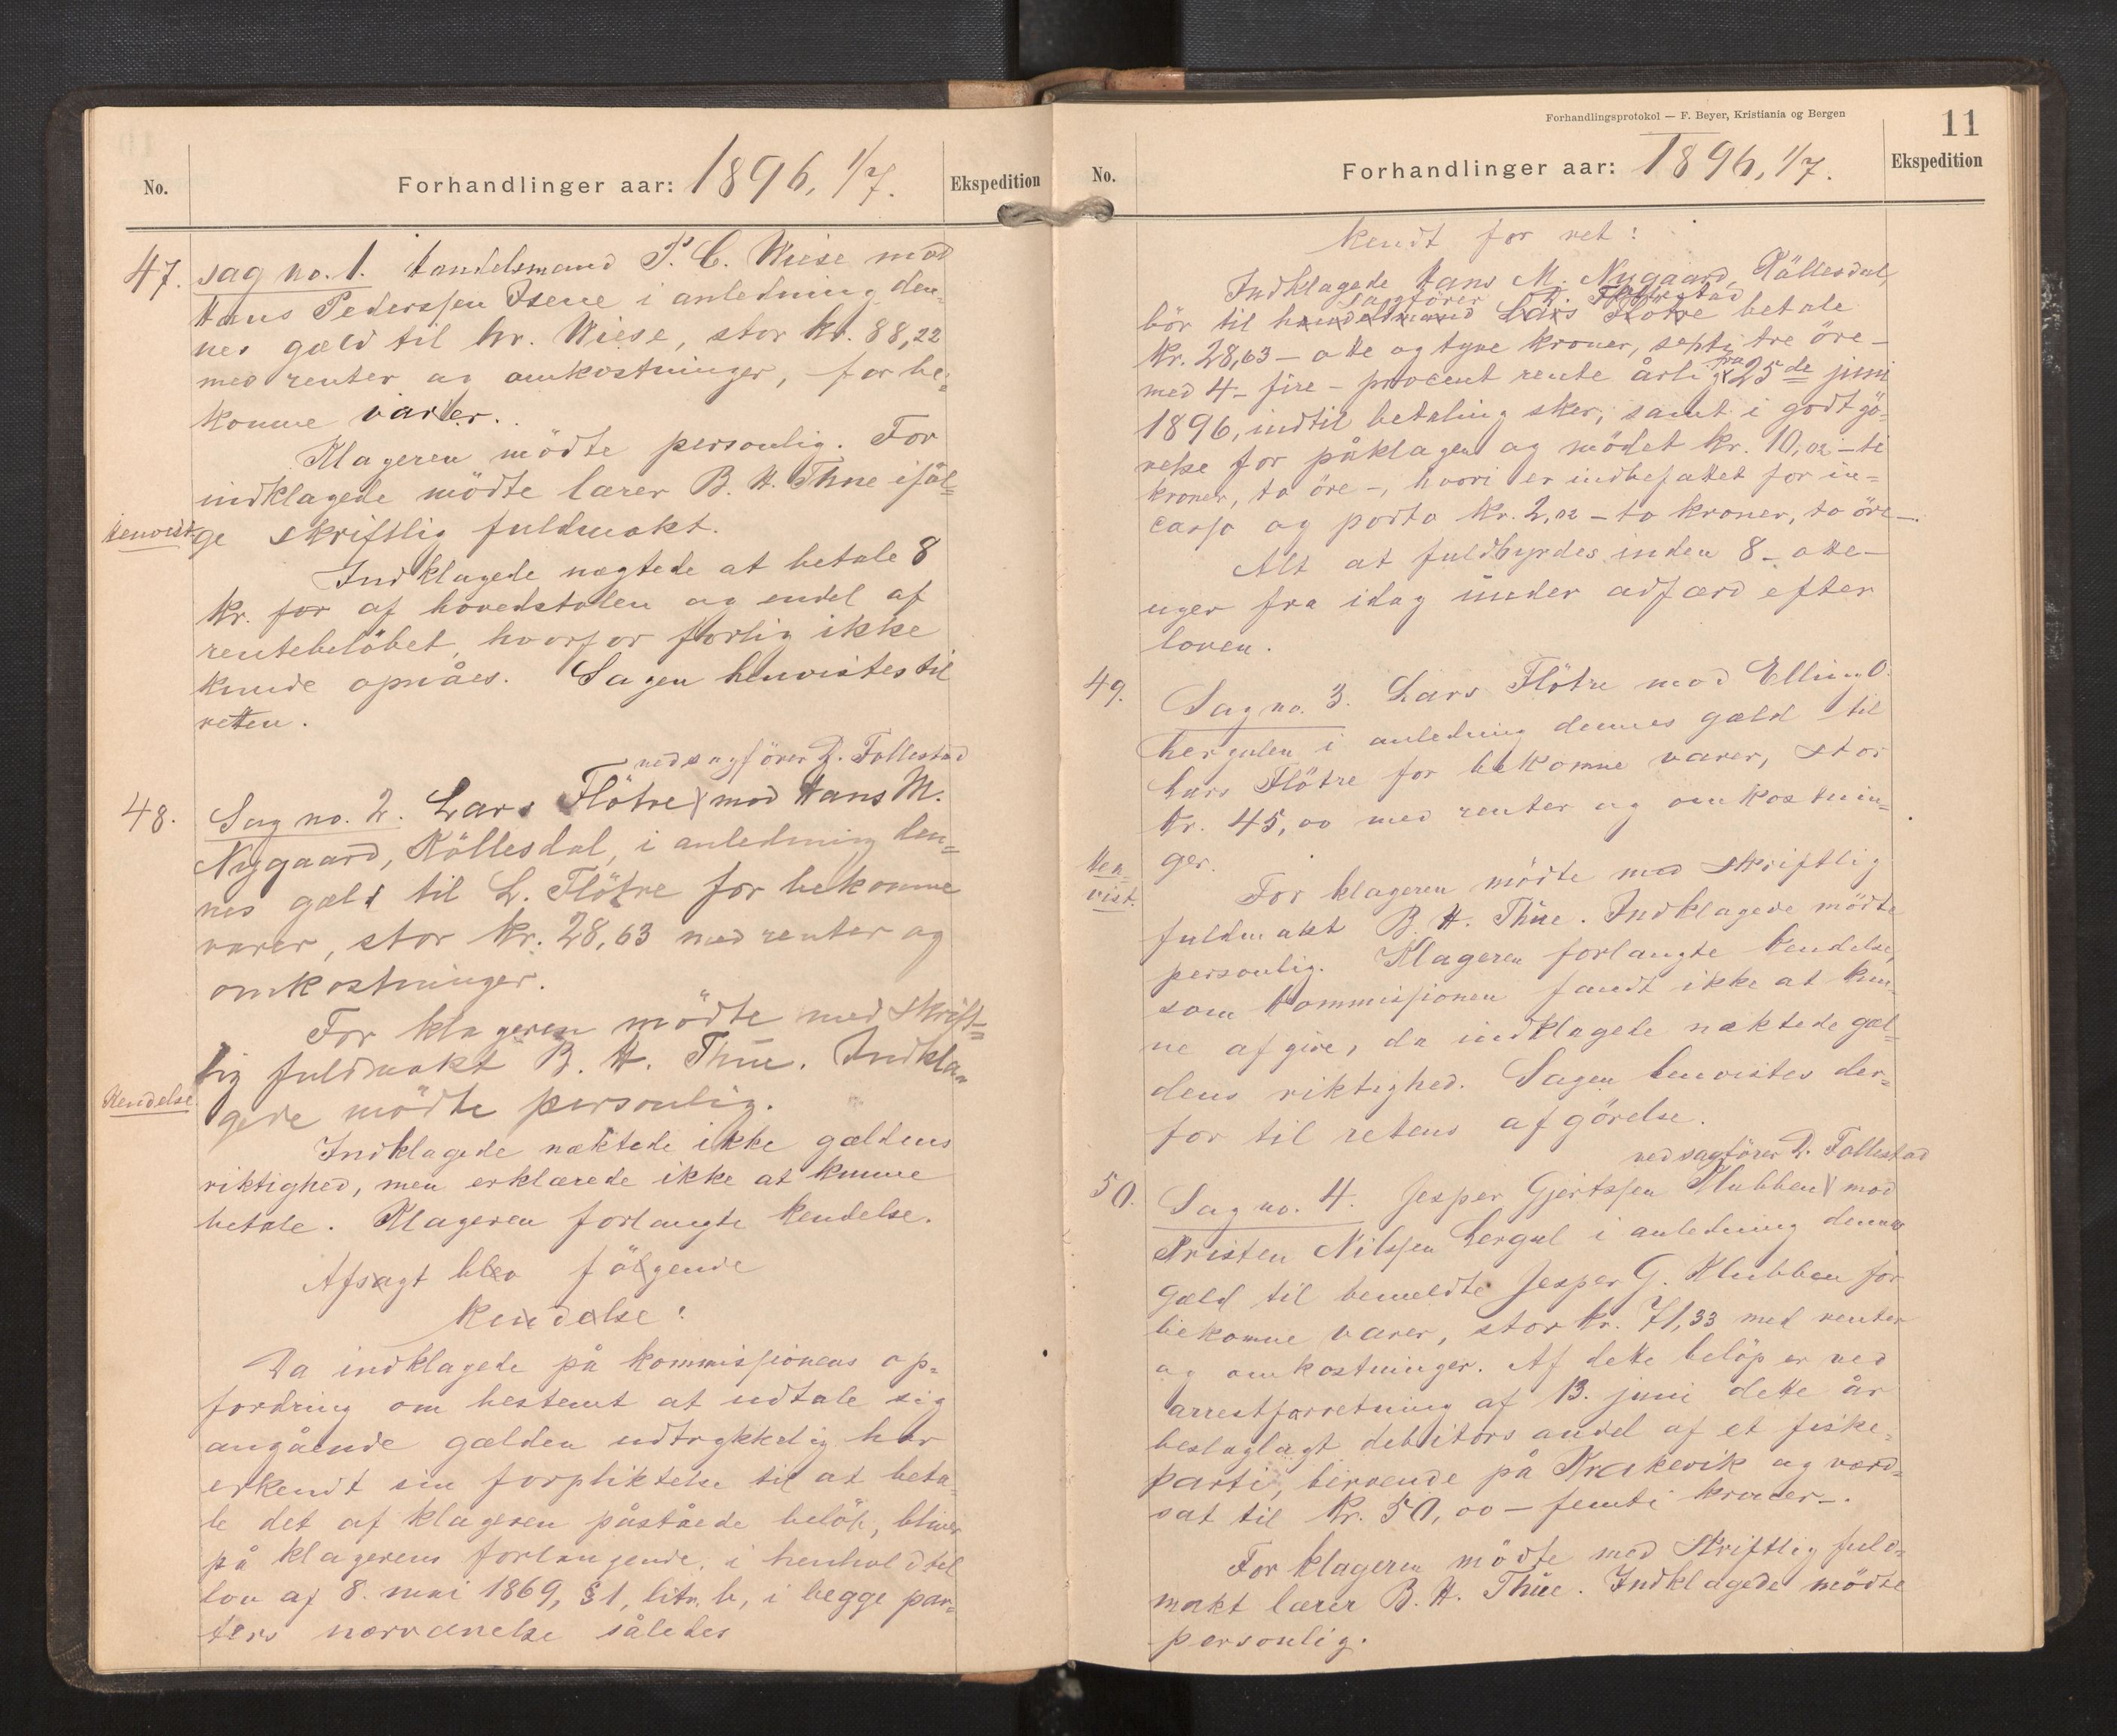 No.
Forhandlinger aar: 1896, 1/7.
Ekspedition
47. Sag no. 1. Handelsmand P. C. Wiese mod
Hans Pederssen Isene i anledning den-
nes gæld til hr. Wiese, stor kr. 88,22
med renter og omkostninger, for be-
komne varer.
Klageren mödte personlig. For
indklagede mödte lærer B. H. Thue iföl-
Henvist
ge skriftlig fuldmakt.
Indklagede nægtede at betale 8
kr. for af hovedstolen og endel af
rentebelöbet, hvorfor forlig ikke
kunde opnåes. Sagen henvistes til
retten.
ved sagförer D. Follestad
48. Sag no. 2. Lars Flötre mod Hans M.
Nygaard, Köllesdal, i anledning den=
nes gæld til L. Flötre for bekomne
varer, stor kr. 28,63 med renter og
omkostninger.
For klageren mödte med skrift=
lig fuldmakt B. H. Thue. Indkla-
Kendelse
gede mödte personlig.
Indklagede næktede ikke gældens
riktighed, men erklærede ikke at kunne
betale. Klageren forlangte kendelse.
Afsagt blev fölgende
kendelse:
Da indklagede på kommissionens op-
fordring om bestemt at udtale sig
angående gælden udtrykkelig har
erkendt sin forpliktelse til at beta-
le det af klageren påståede belöb, bliver
på klagerens forlangende, i henhold til
lov af 8. mai 1869, § 1, litr. b, i begge par-
ters nærværelse således
Forhandlingsprotokol — F. Beyer, Kristiania og Bergen
11
No.
Forhandlinger aar: 1896, 1/7.
Ekspedition
kendt for ret:
Indklagede Hans M. Nygaard, Köllesdal,
sagförer D. Follestad
bör til handelsmand Lars Flötre betale
kr. 28,63 – otte og tyve kroner, seksti tre öre –
med 4 – fire – procent rente årlig fra 25de juni
1896, indtil betaling sker, samt i godtgö-
relse for påklagen og mödet kr. 10,02 – ti
kroner, to öre –, hvori er indbefattet for in=
casso og porto kr. 2,02 – to kroner, to öre –.
Alt at fuldbyrdes inden 8 – otte –
uger fra idag under adfærd efter
loven.
49. Sag no. 3. Lars Flötre mod Elling O.
Lergulen i anledning dennes gæld til
Lars Flötre for bekomne varer, stor
kr. 45,00 med renter og omkostnin=
Hen=
vist.
ger.
For klageren mödte med skriftlig
fuldmakt B. H. Thue. Indklagede mödte
personlig. Klageren forlangte kendelse,
som kommissionen fandt ikke at kun-
ne afgive, da indklagede næktede gæl-
dens riktighed. Sagen henvistes der=
for til retens afgörelse.
ved sagförer D. Follestad
50. Sag no. 4. Jesper Gjertssen Klubben mod
Kristen Nilssen Lergul i anledning dennes
gæld til bemeldte Jesper G. Klubben for
bekomne varer, stor kr. 71,33 med renter
og omkostninger. Af dette belöp er ved
arrestforretning af 13. juni dette år
beslaglagt debitors andel af et fiske-
parti, beroende på Krakevik og værd-
sat til kr. 50,00 – femti kroner –.
For klageren mödte med skriftlig fuld-
makt lærer B. H. Thue. Indklagede mödte
personlig.